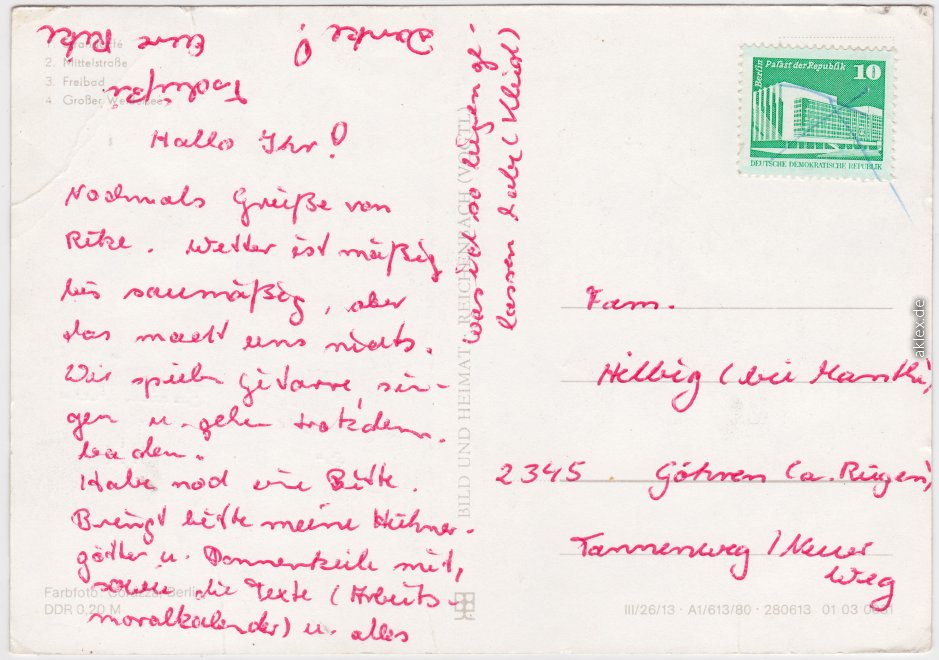 1. Strandcafé
2. Mittelstraße
3. Freibad
4. Großer
Hallo Ihr!
Nochmals Grüße von
Rike. Wetter ist mäßig
bis saumäßig, aber
das macht uns nichts.
Wir spielen Gitarre, sin-
gen u. gehen trotzdem
baden.
Habe noch eine Bitte.
Bringt bitte meine Hühner-
götter u. Donnerkeile mit,
sowie die Texte (Arbeits-
moralkalender) u. alles
was ich so liegen ge-
lassen habe (Kleid)
Danke! Eure Rike
Tschüß
Farbfoto: Berlin
DDR 0,20 M
BILD UND HEIMAT REICHENBACH (VOGTL)
Berlin Palast der Republik 10
DEUTSCHE DEMOKRATISCHE REPUBLIK
Fam.
Hilbig (bei
2345 Göhren (a. Rügen)
Tannenweg / Neuer
Weg
III/26/13 · A1/613/80 · 280613 01 03
aklex.de